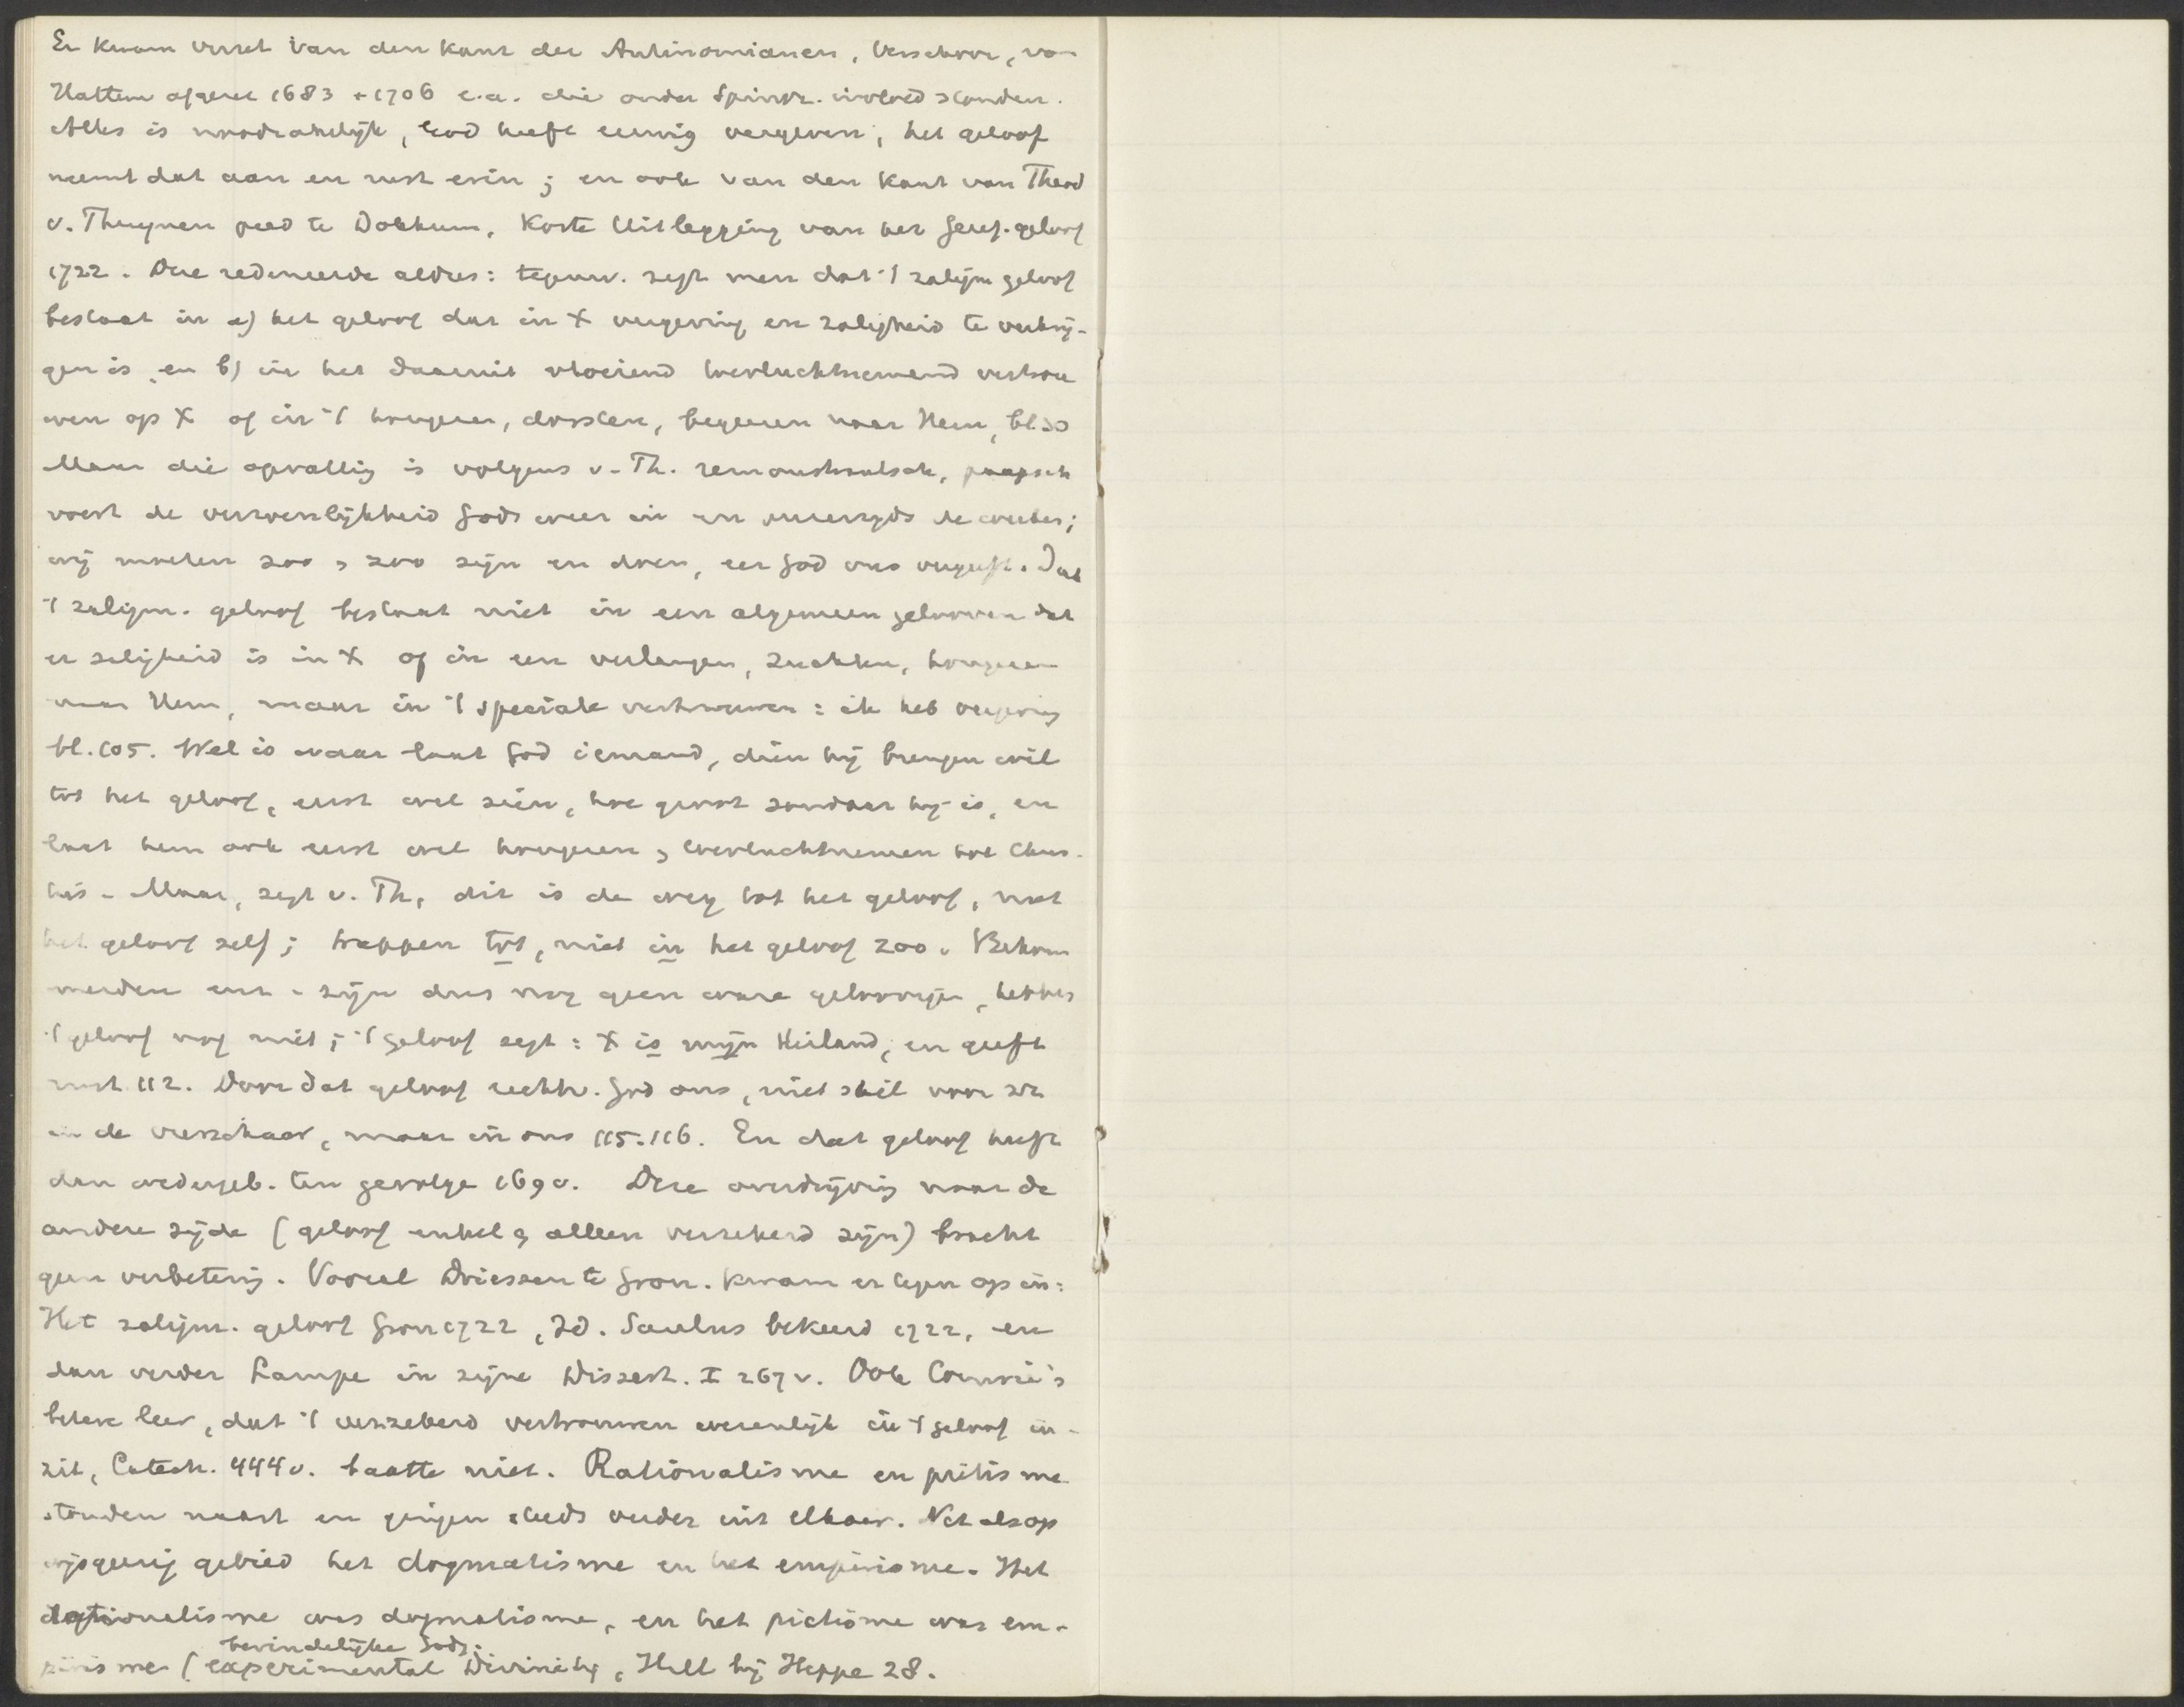 Er kwam verzet van den kant der Antinomianen, Verschoor, van
Hattem afgezet 1683 + 1706 e.a. die onder Spinoz. invloed stonden.
Alles is noodzakelijk, God heeft eeuwig vergeven, het geloof
neemt dat aan en rust erin; en ook van den kant van Theod
v. Thuynen pred te Dokkum, Korte Uitlegging van het Geref. geloof
1722. Deze redeneerde aldus: tegenw. zegt men dat 't zaligm geloof
bestaat in a) het geloof dat in X vergeving en zaligheid te verkrij-
gen is, en b) in het daaruit vloeiend toevluchtnemend vertrou
wen op X of in 't hongeren, dorsten, begeeren naar Hem, bl. 30
Maar die opvatting is volgens v. Th. remonstrantsch, paapsch
voert de verzoenlijkheid Gods weer in en eenerzijds de werken;
wij moeten zoo & zoo zijn en doen, eer God ons vergeeft. Dat
't zaligm. geloof bestaat niet in een algemeen gelooven dat
er zaligheid is in X of in een verlangen, zuchten, hongeren
naar Hem, maar in 't speciale vertrouwen: ik heb vergeving
bl. 105. Wel is waar laat God iemand, dien hij brengen wil
tot het geloof, eerst wel zien, hoe groot zondaar hij is, en
laat hem ook eerst wel hongeren & toevluchtnemen tot Chris-
tus - Maar, zegt v. Th, dit is de weg tot het geloof, niet
het geloof zelf; trappen tot, niet in het geloof 200. Bekom
merden enz - zijn dus nog geen ware geloovigen, hebben
't geloof nog niet; 't geloof zegt: X is mijn Heiland, en geeft
rust 112. Door dat geloof rechtv. God ons, niet stil voor zich
in de vierschaar, maar in ons 115.116. En dat geloof heeft
dan wedergeb. ten gevolge 169 v. Deze overdrijving naar de
andere zijde (geloof enkel & alleen verzekerd zijn) bracht
geen verbetering. Vooral Driessen te Gron. kwam er tegen op in:
Het zaligm. geloof Gron 1722, Id. Saulus bekeerd 1722, en
dan verder Lampe in zijne Dissert. I 267 v. Ook Comrie's
betere leer, dat 't verzekerd vertrouwen wezenlijk in 't geloof in-
zit, Catech. 444 v. baatte niet. Rationalisme en piëtisme
stonden naast en gingen steeds verder uit elkaar. Net als op
wijsgeerig gebied het dogmatisme en het empirisme. Het
rationalisme was dogmatisme, en het piëtisme was em-
bevindelijke Godg.
pirisme (experimental Divinity, Hill bij Heppe 28.